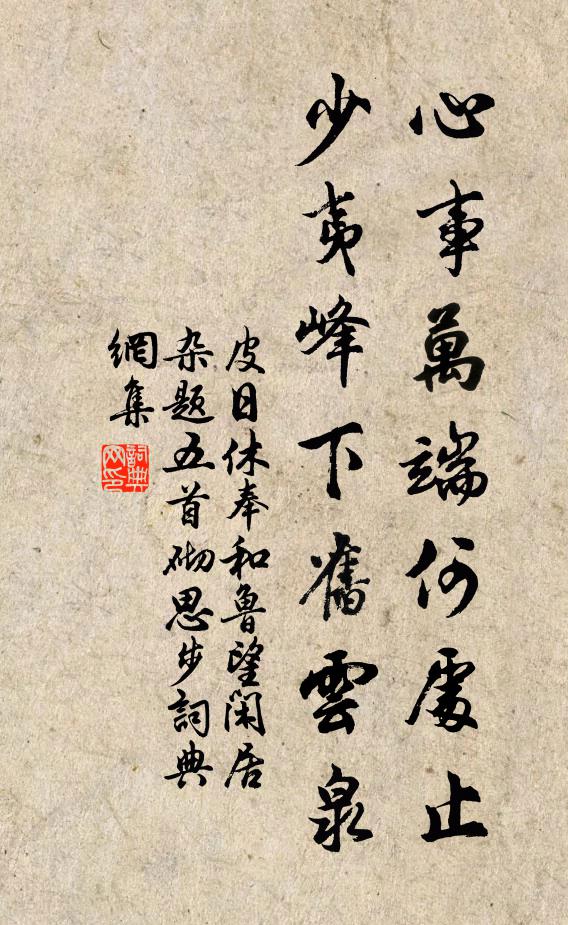 心事萬端何處止
少夷峰下舊雲泉
皮日休奉和魯望闲居
杂题五首砌思步詞典
網集
詞典网印